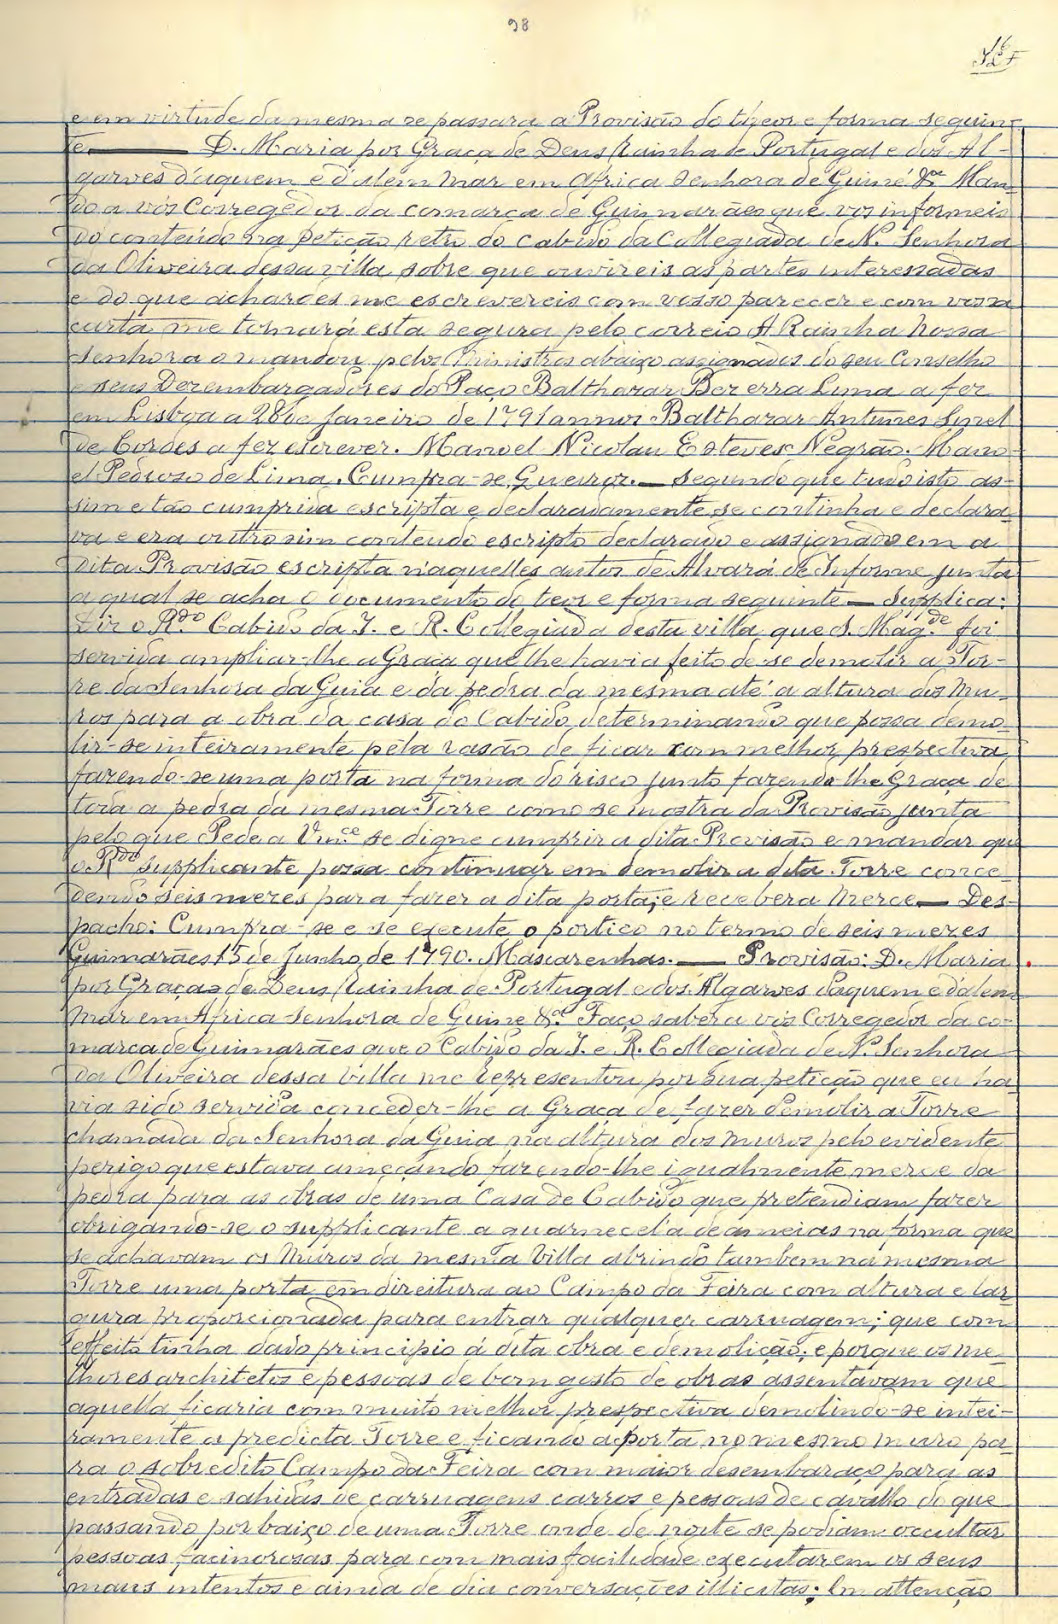 98
e em virtude da mesma se passara a Provisão do theor e forma seguin-
te ——— D. Maria por Graça de Deus Rainha de Portugal e dos Al-
garves d'aquem e d'alem mar em Africa Senhora de Guiné &ª Man-
do a vós Corregedor da comarca de Guimarães que vos informeis
do conteúdo na petição retro do Cabido da Collegiada de N. Senhora
da Oliveira dessa villa sobre que ouvireis as partes interessadas
e do que achardes me escrevereis com vosso parecer e com vossa
carta me tornará esta segura pelo correio A Rainha Nossa
Senhora o mandou pelos Ministros abaixo assignados do seu Conselho
e seus Dezembargadores do Paço Balthazar Bezerra Lima a fez
em Lisboa a 28 de Janeiro de 1791 annos Balthazar Antunes Sinel
de Cordes a fez escrever. Manoel Nicolau Esteves Negrão. Mano-
el Pedrozo de Lima. Cumpra-se, Queiroz. — segundo que tudo isto as-
sim e tão cumprida escripta e declaradamente se continha e declara-
va e era outro sim conteudo escripto declarado e assignado em a
dita Provisão escripta n'aquelles autos de Alvará de Informe junta
a qual se acha o documento do teor e forma seguinte — Supplica:
Diz o R.do Cabido da I. e R. Collegiada desta villa, que S. Mag.de foi
servida ampliar-lhe a Graça que lhe havia feito de se demolir a Tor-
re da Senhora da Guia e da pedra da mesma até a altura dos Mu-
ros para a obra da casa do Cabido, determinando que possa demo-
lir-se inteiramente pela rasão de ficar com melhor prespectiva
fazendo-se uma porta na forma do risco junto fazendo lhe Graça de
toda a pedra da mesma Torre como se mostra da Provisão junta
pelo que Pede a Vm.ce se digne cumprir a dita Provisão e mandar que
o R.do supplicante possa continuar em demolir a dita Torre conce-
dendo seis mezes para fazer a dita porta, e recebera Merce — Des-
pacho: Cumpra-se e se execute o portico no termo de seis mezes
Guimarães 15 de Junho de 1790. Mascarenhas. — Provisão: D. Maria
por Graça de Deus Rainha de Portugal e dos Algarves d'aquem e d'alem
Mar em Africa Senhora de Guine &ª Faço saber a vós Corregedor da co-
marca de Guimarães que o Cabido da I. e R. Collegiada de N. Senhora
da Oliveira dessa Villa me reprresentou por sua petição que eu ha-
via sido servida conceder-lhe a Graça de fazer demolir a Torre
chamada da Senhora da Guia na altura dos muros pelo evidente
perigo que estava ameçando fazendo-lhe igualmente merce da
pedra para as obras de uma Casa de Cabido que pretendiam fazer
obrigando-se o supplicante a guarnecel'a de ameias na forma que
se achavam os Muros da mesma Villa abrindo tambem na mesma
Torre uma porta em direitura ao Campo da Feira com altura e lar-
gura proporcionada para entrar qualquer carruagem; que com
effeito tinha dado principio á dita obra e demolição; e porque os me-
lhores architetos e pessoas de bom gosto de obras assentavam que
aquella ficaria com muito melhor prespectiva demolindo-se intei-
ramente a predicta Torre e ficando a porta no mesmo muro pa-
ra o sobredito Campo da Feira com maior desembaraço para as
entradas e sahidas de carruagens carros e pessoas de cavallo do que
passando por baixo de uma Torre onde de noite se podiam occultar
pessoas facinorosas para com mais facilidade executarem os seus
maus intentos e ainda de dia conversações illicitas; Em attenção